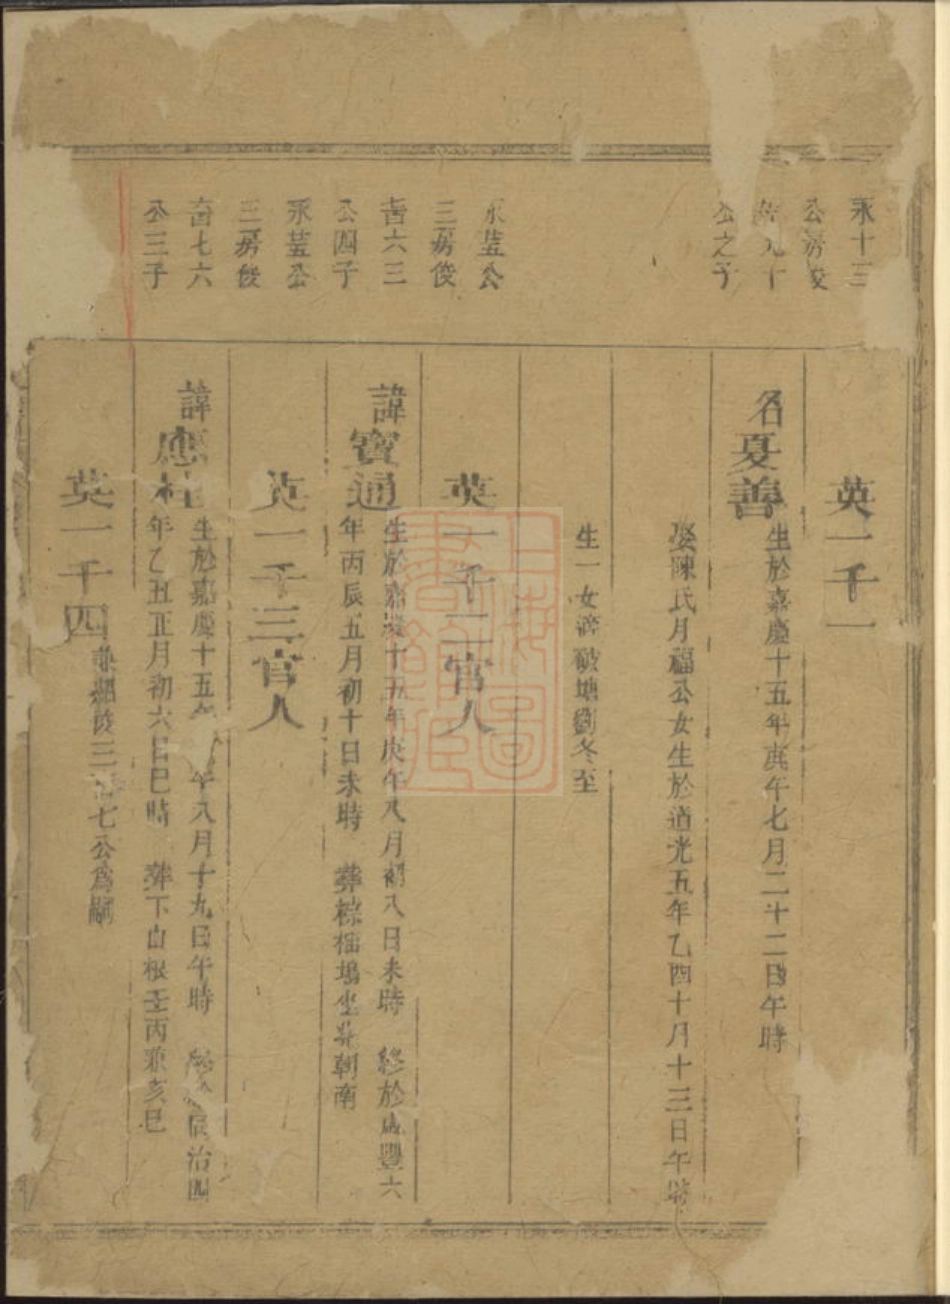 永十三
公房俊
九十
公之子
英一千一
名夏善
生於嘉慶十五年庚午七月二十二日午時
娶陳氏月福公女生於道光五年乙酉十月十三日午時
生一女 破塘劉冬至
永芸公
三房俊
六三
公四子
英一千二官人
諱寶通
生於嘉慶十五年庚午八月初八日未時 終於咸豐六
年丙辰五月初十日未時 葬棕榴塢坐北朝南
永芸公
三房俊
七六
公三子
英一千三官人
諱應桂
生於嘉慶十五年 午八月十九日午時 治四
年乙丑正月初六日巳時 葬下山根壬丙兼亥巳
英一千四
三 七公為嗣
上海圖書館藏